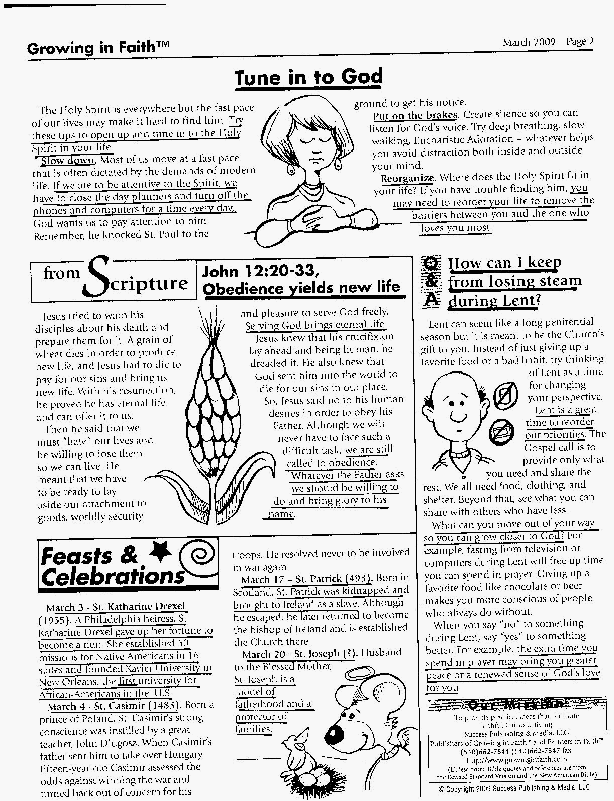 Growing in Faith™
March 2009 Page 2
Tune in to God
The Holy Spirit is everywhere but the fast pace
of our lives may make it hard to find him. Try
these tips to open up and tune in to the Holy
Spirit in your life.
Slow down. Most of us move at a fast pace
that is often dictated by the demands of modern
life. If we are to be attentive to the Spirit, we
have to close the day planners and turn off the
phones and computers for a time every day.
God wants us to pay attention to him.
Remember, he knocked St. Paul to the
ground to get his notice.
Put on the brakes. Create silence so you can
listen for God's voice. Try deep breathing, slow
walking, Eucharistic Adoration – whatever helps
you avoid distraction both inside and outside
your mind.
Reorganize. Where does the Holy Spirit fit in
your life? If you have trouble finding him, you
may need to reorder your life to remove the
barriers between you and the one who
loves you most.
from Scripture
John 12:20-33,
Obedience yields new life
Jesus tried to warn his
disciples about his death and
prepare them for it. A grain of
wheat dies in order to produce
new life, and Jesus had to die to
pay for our sins and bring us
new life. With his resurrection,
he proved he has eternal life
and can offer it to us.
Then he said that we
must "hate" our lives and
be willing to lose them
so we can live. He
meant that we have
to be ready to lay
aside our attachment to
goods, worldly security
and pleasure to serve God freely.
Serving God brings eternal life.
Jesus knew that his crucifixion
lay ahead and being human, he
dreaded it. He also knew that
God sent him into the world to
die for our sins in our place.
So, Jesus said no to his human
desires in order to obey his
Father. Although we will
never have to face such a
difficult task, we are still
called to obedience.
Whatever the Father asks
we should be willing to
do and bring glory to his
name.
Q & A
How can I keep
from losing steam
during Lent?
Lent can seem like a long penitential
season but it is meant to be the Church's
gift to you. Instead of just giving up a
favorite food or a bad habit, try thinking
of Lent as a time
for changing
your perspective.
Lent is a great
time to reorder
our priorities. The
Gospel call is to
provide only what
you need and share the
rest. We all need food, clothing, and
shelter. Beyond that, see what you can
share with others who have less.
What can you move out of your way
so you can grow closer to God? For
example, fasting from television or
computers during Lent will free up time
you can spend in prayer. Giving up a
favorite food like chocolate or beer
makes you more conscious of people
who always do without.
When you say "no" to something
during Lent, say "yes" to something
better. For example, the extra time you
spend in prayer may bring you greater
peace or a renewed sense of God's love
for you.
Feasts &
Celebrations
March 3 - St. Katharine Drexel
(1955). A Philadelphia heiress, St.
Katharine Drexel gave up her fortune to
become a nun. She established 50
missions for Native Americans in 16
states and founded Xavier University in
New Orleans, the first university for
African-Americans in the U.S.
March 4 - St. Casimir (1483). Born a
prince of Poland, St. Casimir's strong
conscience was instilled by a great
teacher, John Dlugosz. When Casimir's
father sent him to take over Hungary
Fifteen-year-old Casimir assessed the
odds against winning the war and
turned back out of concern for his
troops. He resolved never to be involved
in war again.
March 17 - St. Patrick (493). Born in
Scotland, St. Patrick was kidnapped and
brought to Ireland as a slave. Although
he escaped, he later returned to become
the bishop of Ireland and is established
the Church there.
March 20 - St. Joseph (?). Husband
to the Blessed Mother,
St. Joseph is a
model of
fatherhood and a
protector of
families.
Our Mission
Success Publishing & Media, LLC
Publishers of Growing in Faith™ and Partners in Faith™
(540)662-7844 (540)662-7847 fax
http://www.growinginfaith.com
© Copyright 2009 Success Publishing & Media, LLC